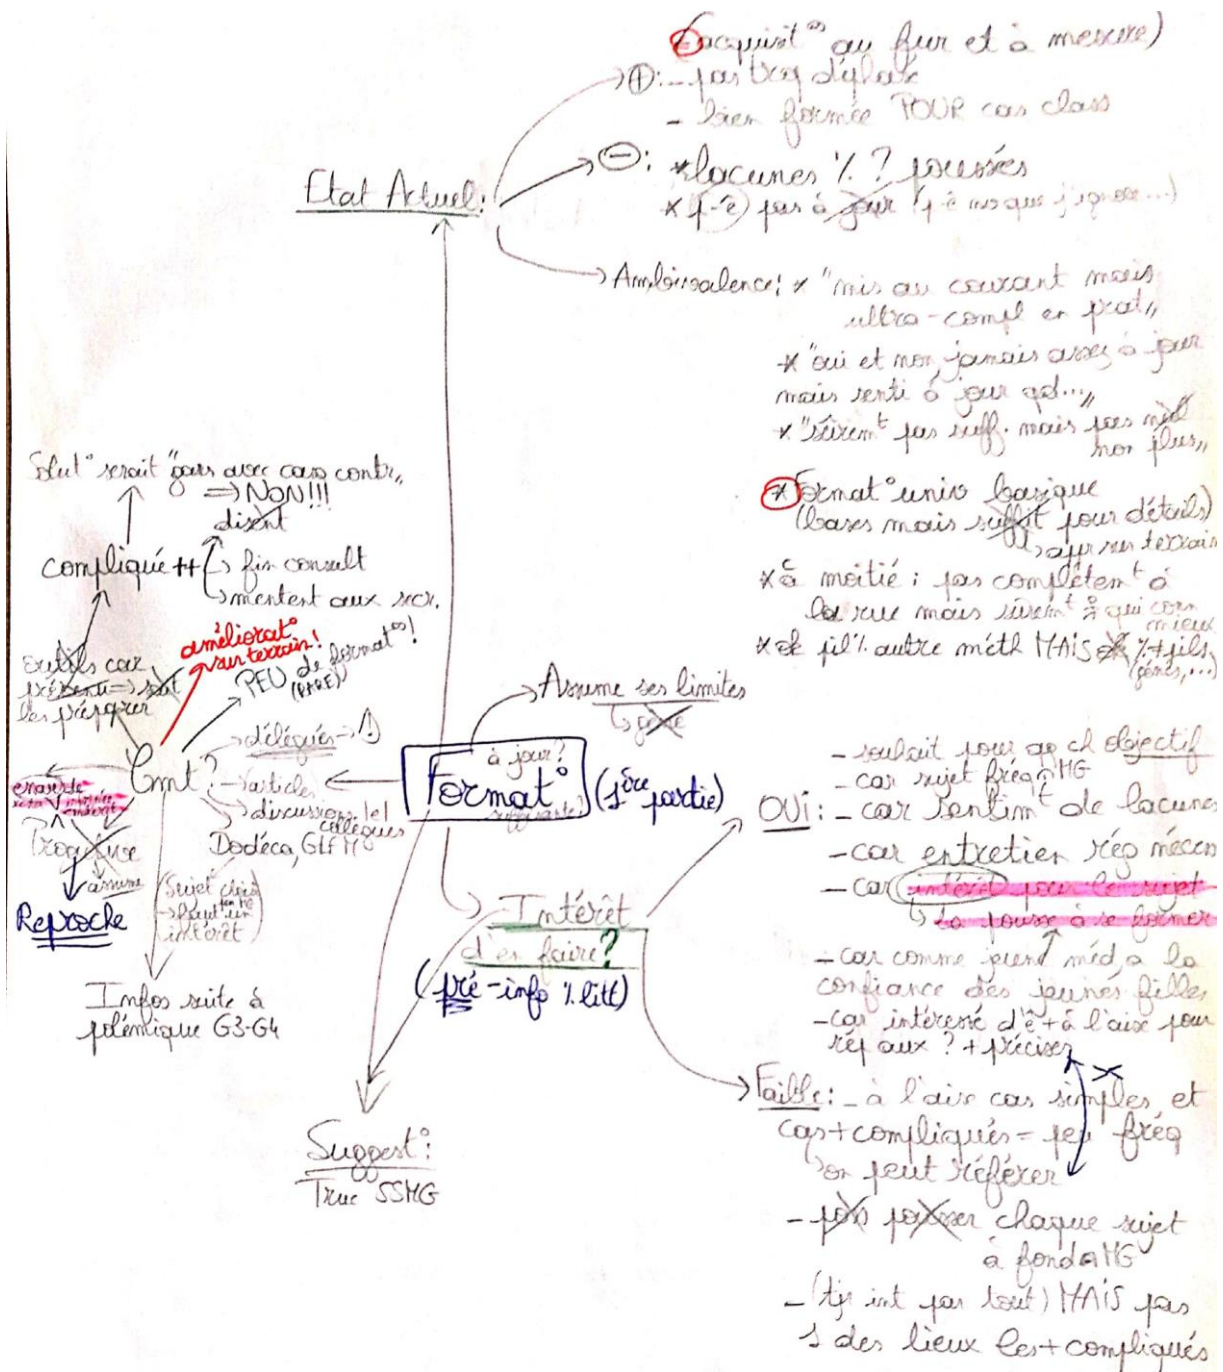 (acquisit° au fur et à mesure)
⊕: - pas trop d'
- bien formée POUR cas class
Etat Actuel:
⊖: * lacunes % ? poussées
* (p-ê) pas à jour (p-ê que j'ignore...)
Ambivalence: * "mis au courant mais
ultra-compl en prat"
* "oui et non, jamais assez à jour
mais senti à jour qd..."
* "sûrem^t pas suff. mais pas
non plus"
* Format° univ basique
(bases mais suffit pour détails)
↳ sur terrain
* à moitié: pas complètem^t à
la rue mais sûrem^t qui
mieux
* ok pil % autre méth MAIS % + pils
Solut° serait "gars avec caso contr"
⇒ NON!!!
disent
compliqué ++
↳ fin consult
↳ mentent aux secr.
améliorat°
sur terrain!
PEU de format°!
(RARE)
Outils car
les préparer
Cmt?
→ délégués → !
→ articles
→ discussion
collègues
Dodéca, GLEM
assume
Reproche
Sujet
intérêt
Infos suite à
polémique G3-G4
Assume ses limites
↳ gêne
à jour?
Format°
suffisante?
(1ère partie)
Intérêt
d'en faire?
(pré-info % litt)
Suggest°:
Truc SSMG
- souhait pour ch objectif
- car sujet fréq MG
OUI: - car sentim^t de lacunes
- car entretien rég
- car intérêt pour le sujet
↳ la pousse à se former
- car comme méd, a la
confiance des jeunes filles
- car intéressé d'ê + à l'aise pour
rép aux ? + précises
Faible: - à l'aise cas simples, et
cas + compliqués = peu fréq
↳ on peut référer
- pas chaque sujet
à fond MG
- (tjs int par tout) MAIS pas
1 des lieux les + compliqués